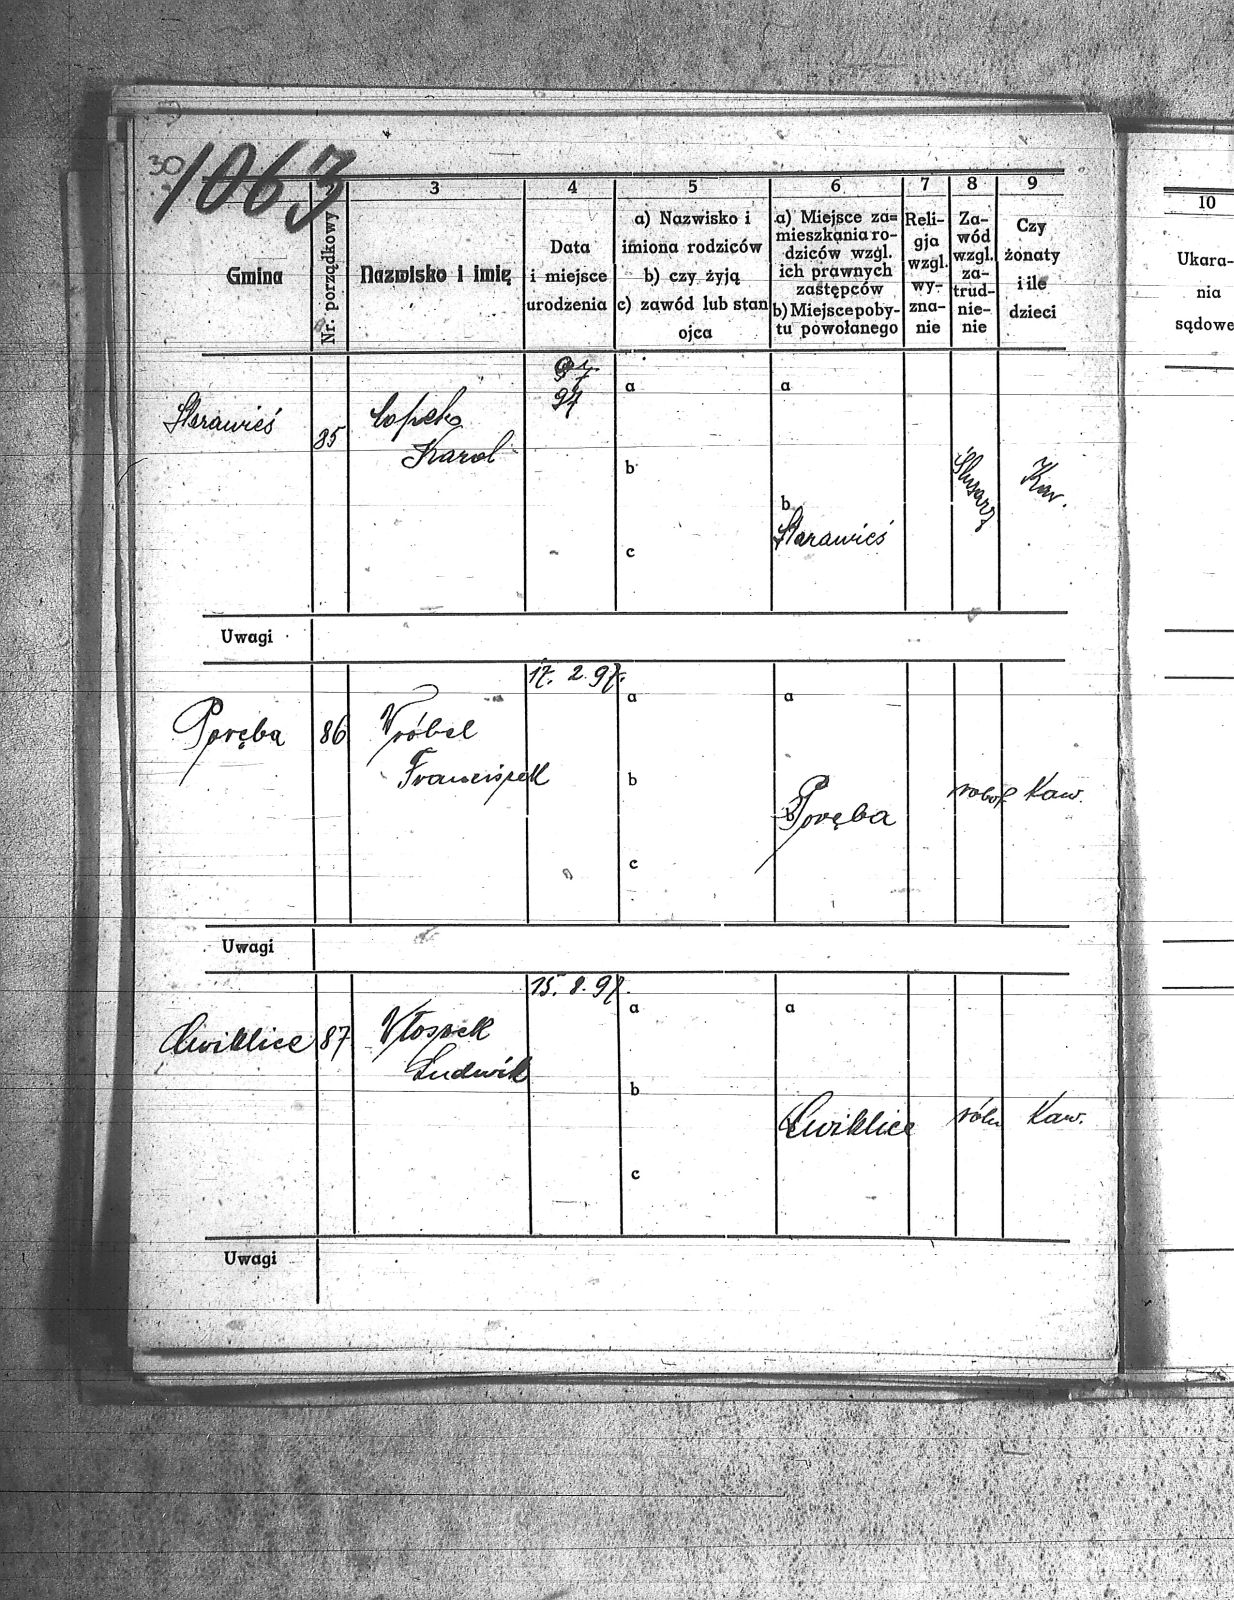 30
1063
3
4
5
6
7
8
9
10
Gmina
Nr. porządkowy
Nazwisko i imię
Data
i miejsce
urodzenia
a) Nazwisko i
imiona rodziców
b) czy żyją
c) zawód lub stan
ojca
a) Miejsce za=
mieszkania ro-
dziców wzgl.
ich prawnych
zastępców
b) Miejsce poby-
tu powołanego
Reli-
gja
wzgl.
wy-
zna-
nie
Za-
wód
wzgl.
za-
trud-
nie-
nie
Czy
żonaty
i ile
dzieci
Ukara-
nia
sądowe
Starawieś
85
Łopek
Karol
97
a
b
c
a
b
Starawieś
Ślusarz
Kaw.
Uwagi
Poręba
86
Wróbel
Franciszek
17. 2. 97.
a
b
c
a
b
Poręba
robot.
Kaw.
Uwagi
Ćwiklice
87
Włoszek
Ludwik
15. 8. 97.
a
b
c
a
Ćwiklice
roln
Kaw.
Uwagi